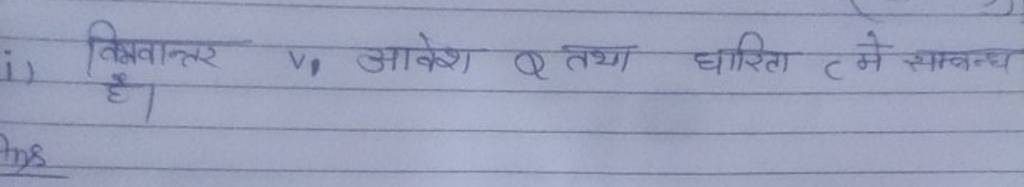 i) विभवान्तर V, आवेश Q तथा धारिता C में सम्बन्ध
है।
Ans